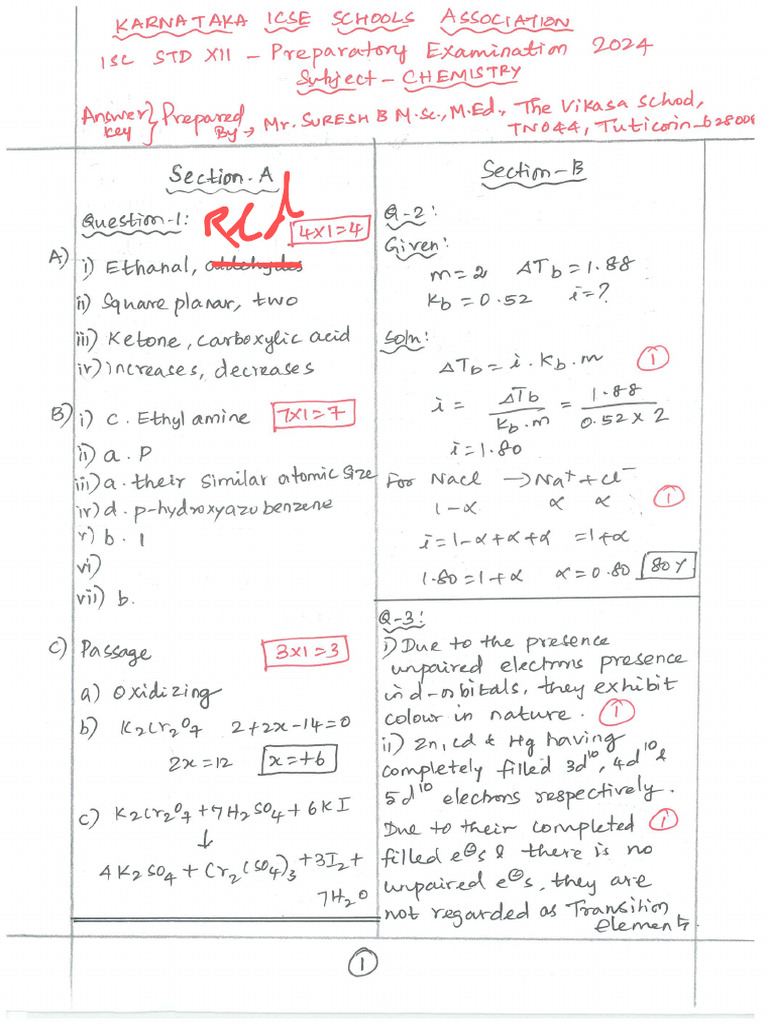 KARNATAKA ICSE SCHOOLS ASSOCIATION
ISC STD XII - Preparatory Examination 2024
Subject - CHEMISTRY
Answer key } Prepared By → Mr. SURESH B M.Sc., M.Ed., The Vikasa School,
TN044, Tuticorin-628008
Section-A
Question-1: Red 4x1=4
A) i) Ethanal,
ii) Square planar, two
iii) Ketone, carboxylic acid
iv) increases, decreases
B) i) c. Ethyl amine 7x1=7
ii) a. P
iii) a. their similar atomic size
iv) d. p-hydroxyazobenzene
v) b. 1
vi)
vii) b.
C) Passage 3x1=3
a) Oxidizing
b) K2Cr2O7 2+2x-14=0
2x=12 x=+6
c) K2Cr2O7+7H2SO4+6KI
↓
4K2SO4+Cr2(SO4)3+3I2+
7H2O
Section-B
Q-2:
Given:
m=2 ΔTb=1.88
Kb=0.52 i=?
Soln:
ΔTb=i.Kb.m 1
i = ΔTb / Kb.m = 1.88 / 0.52x2
i=1.80
For NaCl → Na⁺ + Cl⁻
1-α α α 1
i=1-α+α+α =1+α
1.80=1+α α=0.80 80%
Q-3:
i) Due to the presence
unpaired electrons presence
in d-orbitals, they exhibit
colour in nature. 1
ii) Zn, Cd & Hg having
completely filled 3d¹⁰, 4d¹⁰ &
5d¹⁰ electrons respectively.
Due to their completed 1
filled e⊖s & there is no
unpaired e⊖s, they are
not regarded as Transition
elements.
1